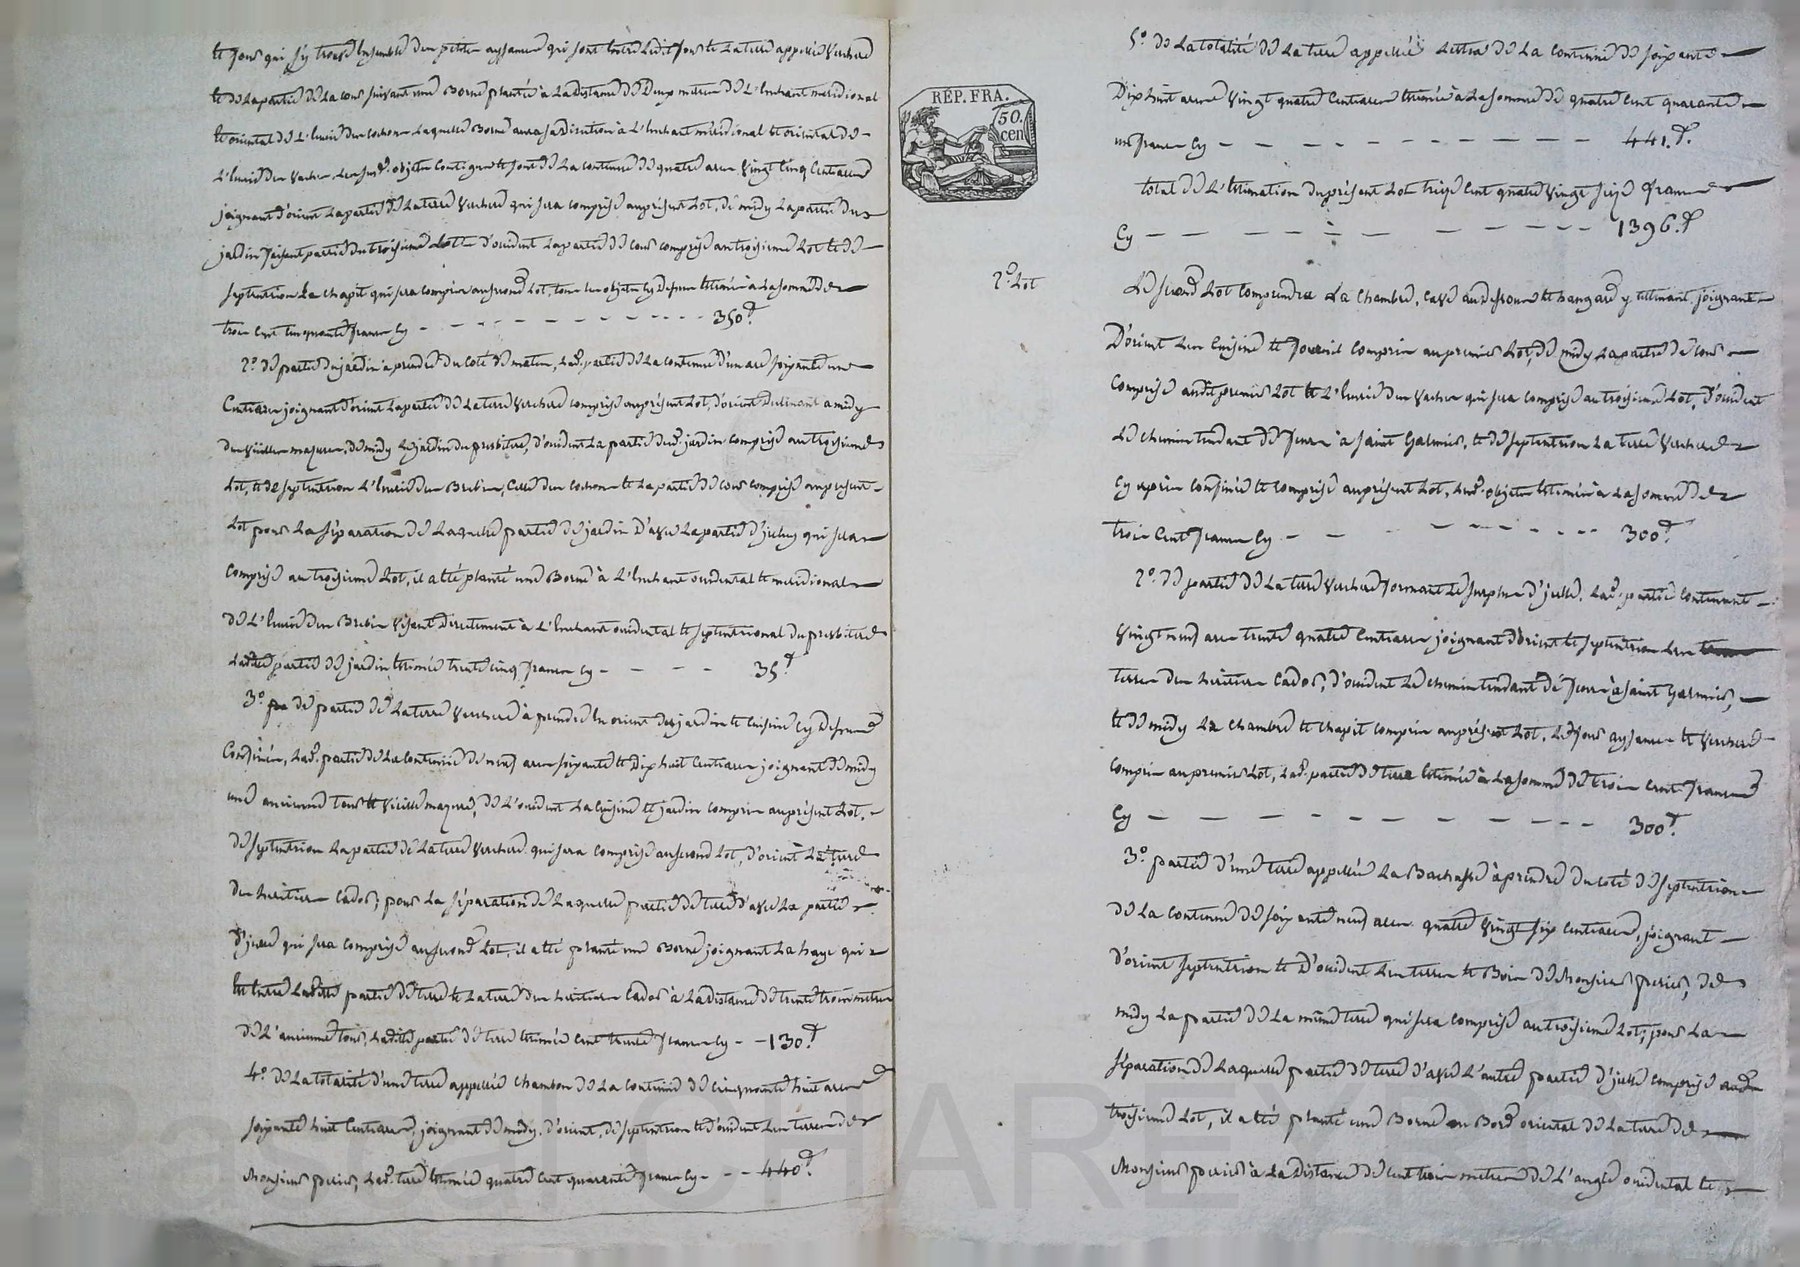 et four qui s'y trouve ensemble des petites aysances qui sont entre ledit four et la terre appellée Verchere
et de la partie de la cour suivant une Borne plantée à la distance de Deux mètres de L'enchant méridional
et oriental de l'Ecurie des cochons laquelle Borne aura sa direction à L'enchant méridional et oriental de
L'Ecurie des Vaches, Les susd. objets Contigus et sont de La contenue de quatre ares Vingt Cinq Centiares
joignant d'orient La partie de La terre Verchere qui sera comprise au présent Lot, de midy La partie du
jardin faisant partie du troisieme Lot d'occident La partie de cour comprise au troisieme Lot et de
septentrion Le chapit qui sera compris au second Lot, tous les objets Cy Dessus Estimés à La somme de
trois Cent Cinquante francs Cy 350.f
2.o De partie du jardin à prendre du coté de matin, Lad. partie de La contenue d'un are soixante un
Centiares joignant d'orient La partie de La terre Verchere comprise au présent Lot, d'orient Declinant à midy
des Vieilles masures, de midy Le jardin du presbitere, d'occident La partie dud. jardin comprise au troisieme
Lot, et de septentrion L'Ecurie des Brebis, Celle des Cochons et La partie de cour comprise au présent
Lot pour La séparation de Laquelle partie de jardin D'avec La partie d'jceluy qui sera
Comprise au troisieme Lot, il a été planté une Borne à L'enchant occidental et méridional
de L'Ecurie des Brebis Visant Directement à L'enchant occidental et septentrional du presbitere
Laditte partie de jardin Estimée trente cinq francs Cy 35.f
3.o de partie de La terre Verchere à prendre En orient des jardin et Cuisine Cy Dessus
Confinés, Lad. partie de La Contenue de neuf ares soixante et Dix huit Centiares joignant de midy
une ancienne tour et Vieille mazure, de L'occident La Cuisine et jardin compris au présent Lot,
de septentrion La partie de La terre Verchere qui sera comprise au second Lot, d'orient La terre
des heritiers Cador, pour La séparation de Laquelle partie de terre d'avec La partie
d'jcelle qui sera comprise au second Lot, il a été planté une Borne joignant La haye qui
est entre Laditte partie de terre et La terre des heritiers Cador à La distance de trente trois metres
de L'ancienne tour, Laditte partie de terre Estimée Cent trente francs Cy 130.f
4.o de La totalité d'une terre appellée chambon de La Contenue de Cinquante huit ares
soixante huit Centiares, joignant de midy, d'orient, de septentrion et d'occident Les terres de
Monsieur perier, Lad. terre Estimée quatre Cent quarante francs Cy 440.f
RÉP. FRA.
50.
cen
5.o De La totalité de La terre appellée Lettra de La Contenue de soixante
Dix huit ares Vingt quatre Centiares Estimée à La somme de quatre Cent quarante
un francs Cy 441.f
total de L'Estimation du présent Lot treize Cent quatre Vingt seize francs
Cy 1396.f
2.o Lot
Le second Lot Comprendra La Chambre, Cave au dessous et hangard y attenant, joignant
D'orient Les Cuisine et fournil Compris au premier Lot, de midy La partie de cour
Comprise audit premier Lot et L'Ecurie des Vaches qui sera comprise au troisieme Lot, D'occident
Le chemin tendant de feurs à saint Galmier, et de septentrion La terre Verchere
Cy après Confinée et Comprise au présent Lot, Lesd. objets Estimés à La somme de
trois Cent francs Cy 300.f
2.o De partie de La terre Verchere formant Le surplus d'jcelle, Lad. partie Contenant
Vingt neuf ares trente quatre Centiares joignant d'orient et septentrion Les
terres des heritiers Cador, d'occident Le chemin tendant de feurs à saint Galmier,
et de midy La Chambre et chapit compris au présent Lot, Les four aysances et Verchere
Compris au premier Lot, Lad. partie de terre Estimée à La somme de trois Cent francs
Cy 300.f
3.o partie d'une terre appellée La Bachasse à prendre du coté de septentrion
de La Contenue de soixante neuf ares quatre Vingt six Centiares, joignant
d'orient septentrion et D'occident Les terres et Bois de Monsieur perier, de
midy La partie de La même terre qui sera Comprise au troisieme Lot; pour La
séparation de Laquelle partie de terre d'avec L'autre partie d'jcelle Comprise au
troisieme Lot, il a été planté une Borne au Bord oriental de La terre de
Monsieur perier à La Distance de Cent trois metres de L'angle occidental et